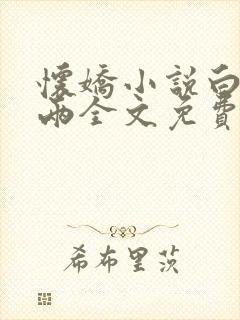 懷嬌小說白
兩全文免費
希布里茨